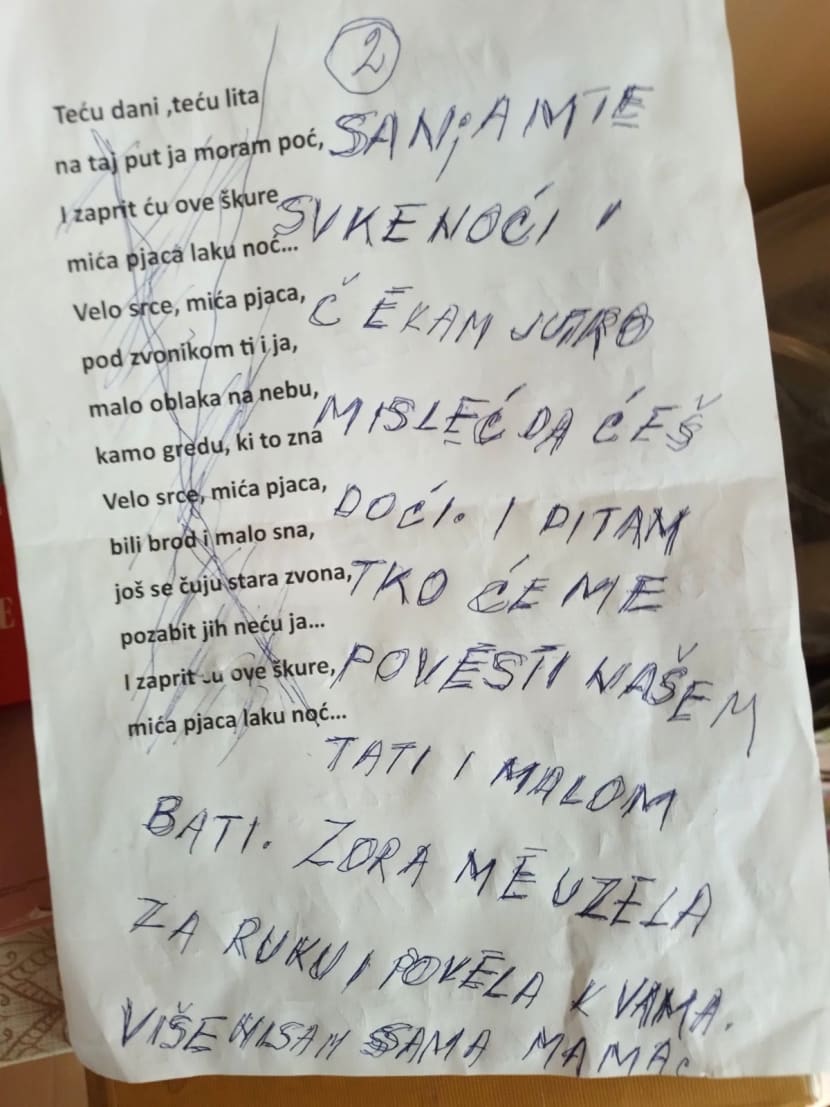 2
Teću dani ,teću lita
na taj put ja moram poć,
I zaprit ću ove škure
mića pjaca laku noć...
Velo srce, mića pjaca,
pod zvonikom ti i ja,
malo oblaka na nebu,
kamo gredu, ki to zna
Velo srce, mića pjaca,
bili brod i malo sna,
još se čuju stara zvona,
pozabit jih neću ja...
I zaprit ću ove škure,
mića pjaca laku noć...
SANjAM TE
SVKE NOĆI I
ČEKAM JUTRO
MISLEĆ DA ĆEŠ
DOĆI. I PITAM
TKO ĆE ME
POVESTI NAŠEM
TATI I MALOM
BATI. ZORA ME UZELA
ZA RUKU I POVELA K VAMA.
VIŠE NISAM SAMA MAMA.